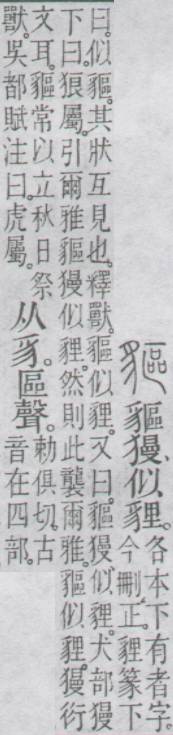 貙 貙獌似貍。
各本下有者字。
今刪正。貍篆下
曰。似貙。其狀互見也。釋獸。貙似貍。又曰。貙獌似貍。犬部獌
下曰。狼屬。引爾雅貙獌似貍。然則此襲爾雅。貙似貍。獌衍
文耳。貙常以立秋日祭
獸。吳都賦注曰。虎屬。
从豸。區聲。
勅俱切。古
音在四部。